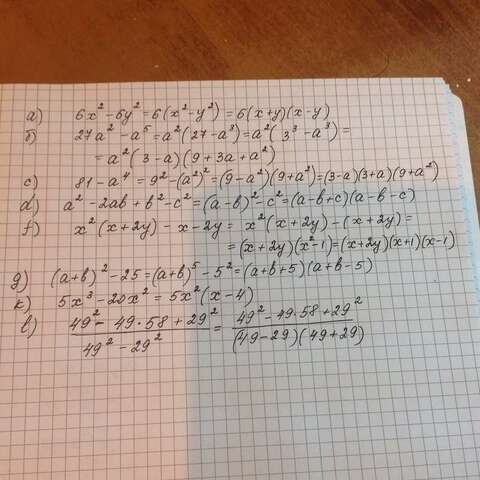 a) 6x² - 6y² = 6(x² - y²) = 6(x+y)(x-y)
б) 27a² - a⁵ = a²(27 - a³) = a²(3³ - a³) =
= a²(3-a)(9+3a+a²)
c) 81 - a⁴ = 9² - (a²)² = (9-a²)(9+a²) = (3-a)(3+a)(9+a²)
d) a² - 2ab + b² - c² = (a-b)² - c² = (a-b+c)(a-b-c)
f) x²(x+2y) - x - 2y = x²(x+2y) - (x+2y) =
= (x+2y)(x²-1) = (x+2y)(x+1)(x-1)
g) (a+b)² - 25 = (a+b)⁵ - 5² = (a+b+5)(a+b-5)
k) 5x³ - 20x² = 5x²(x-4)
l) (49² - 49·58 + 29²)/(49² - 29²) = (49² - 49·58 + 29²)/((49-29)(49+29))